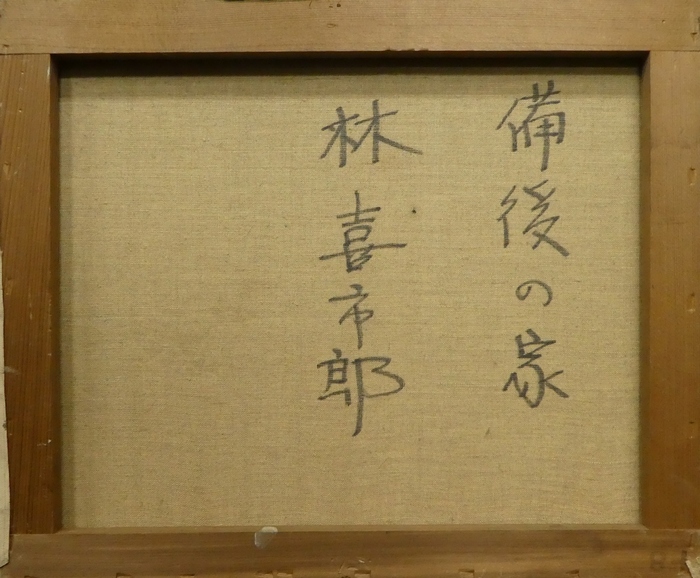 備後の家
林喜市郎